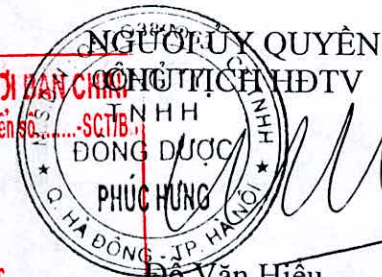 NGƯỜI ỦY QUYỀN
CHỦ TỊCH HĐTV
BẢN CHÍNH
-SCT/B
CÔNG TY
TNHH
ĐÔNG DƯỢC
PHÚC HƯNG
Q. HÀ ĐÔNG - TP. HÀ NỘI
Đỗ Văn Hiệu